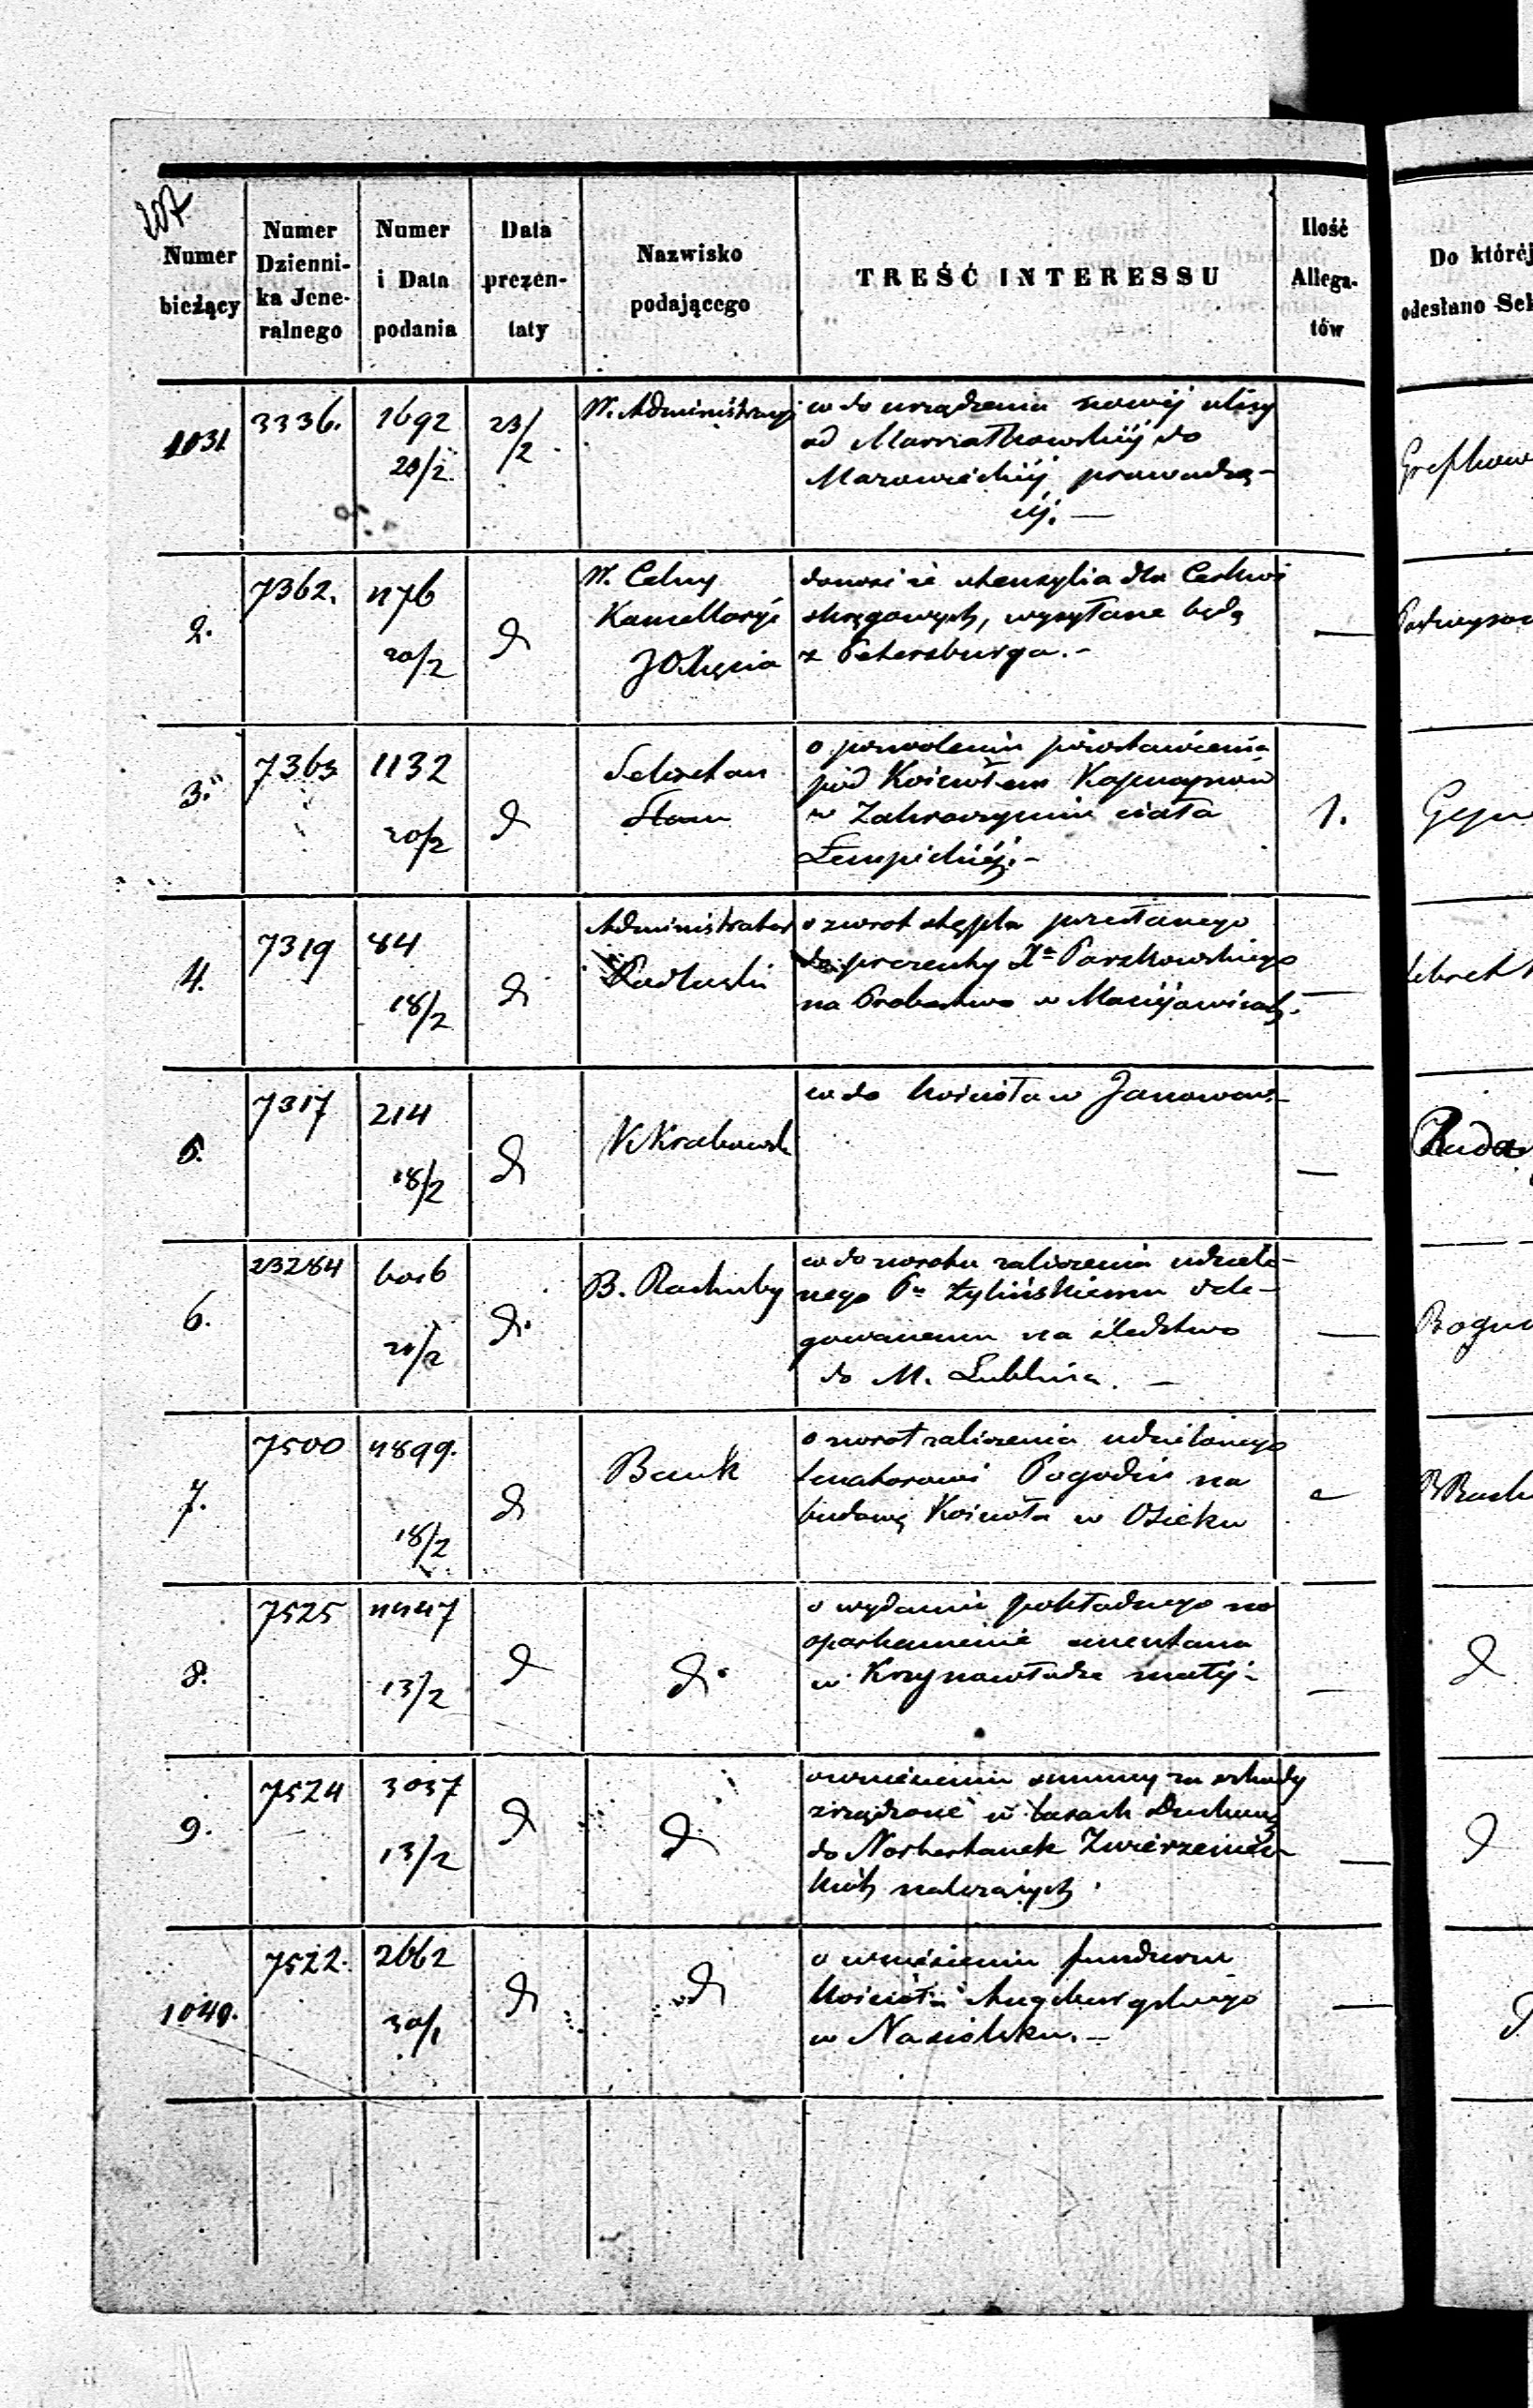 207
Numer bieżący
Numer Dzienni-ka Jene-ralnego
Numer i Data podania
Data prezen-taty
Nazwisko podającego
TREŚĆ INTERESSU
Ilość Allega-tów
Do któréj
odesłano Sek
1031
3336.
1692
20/2
23/2
W. Administracyi
co do urządzenia nowéj ulicy
od Marszałkowskiéj do
Mazowieckiéj prowadzą-
céj. —
2.
7362.
1176
20/2
d
W. Celny
Kancellaryi
JOXięcia
donosi że utensylia dla Cerkwi
okręgowych, wysyłane będą
z Petersburga. -
—
3.
7363
1132
20/2
d
Sekretarz
Stanu
o pozwoleniu pozostawienia
pod Kościołem Kapucynów
w Zakroczymiu ciała
Łempickiéj. -
1.
4.
7319
84
18/2
d
Administrator
Podlaski
o zwrot stępla przesłanego
do prezenty Xa Parzkowskiego
na Probostwo w Maciejowicach.
—
5.
7317
214
18/2
d
co do kościoła w Janowcu. -
—
6.
23284
6016
20/2
d.
B. Rachuby
co do zwrotu zaliczenia udzielo-
nego Pu Żylińskiemu dele-
gowanemu na śledztwo
do M. Lublina. —
—
7.
7500
4899.
18/2
d
Bank
o zwrot zaliczenia udzielonego
Senatorowi Pogodin na
budowę Kościoła w Osieku
8.
7525
4447
13/2
d
d.
o wydanie pokładnego na
oparkanienie cmentarza
w Krzynowłodze małéj -
—
d
9.
7524
3037
13/2
d
d
o wniesieniu summy za szkody
zrządzone w lasach Duchow.
do Norbertanek Zwierzyniec-
kich należących.
—
d
1040.
7522.
2662
30/1
d
d
o wniesieniu funduszu
Kościoła Augsburgskiego
w Nasielsku. -
—
d